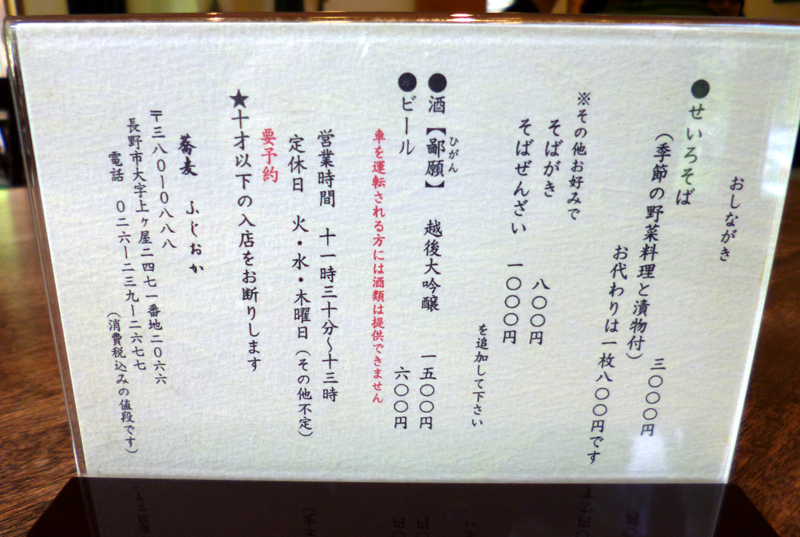 おしながき
●せいろそば
(季節の野菜料理と漬物付) 三〇〇〇円
お代わりは一枚八〇〇円です
※その他お好みで
そばがき 八〇〇円
そばぜんざい 一〇〇〇円
を追加して下さい
●酒【鄙願】 越後大吟醸 一五〇〇円
ひがん
●ビール 六〇〇円
車を運転される方には酒類は提供できません
営業時間 十一時三十分～十三時
定休日 火・水・木曜日(その他不定)
要予約
★十才以下の入店をお断りします
蕎麦 ふじおか
〒三八〇-〇八八八
長野市大字上ヶ屋二四七一番地二〇六六
電話 〇二六-二三九-二六七七
(消費税込みの値段です)